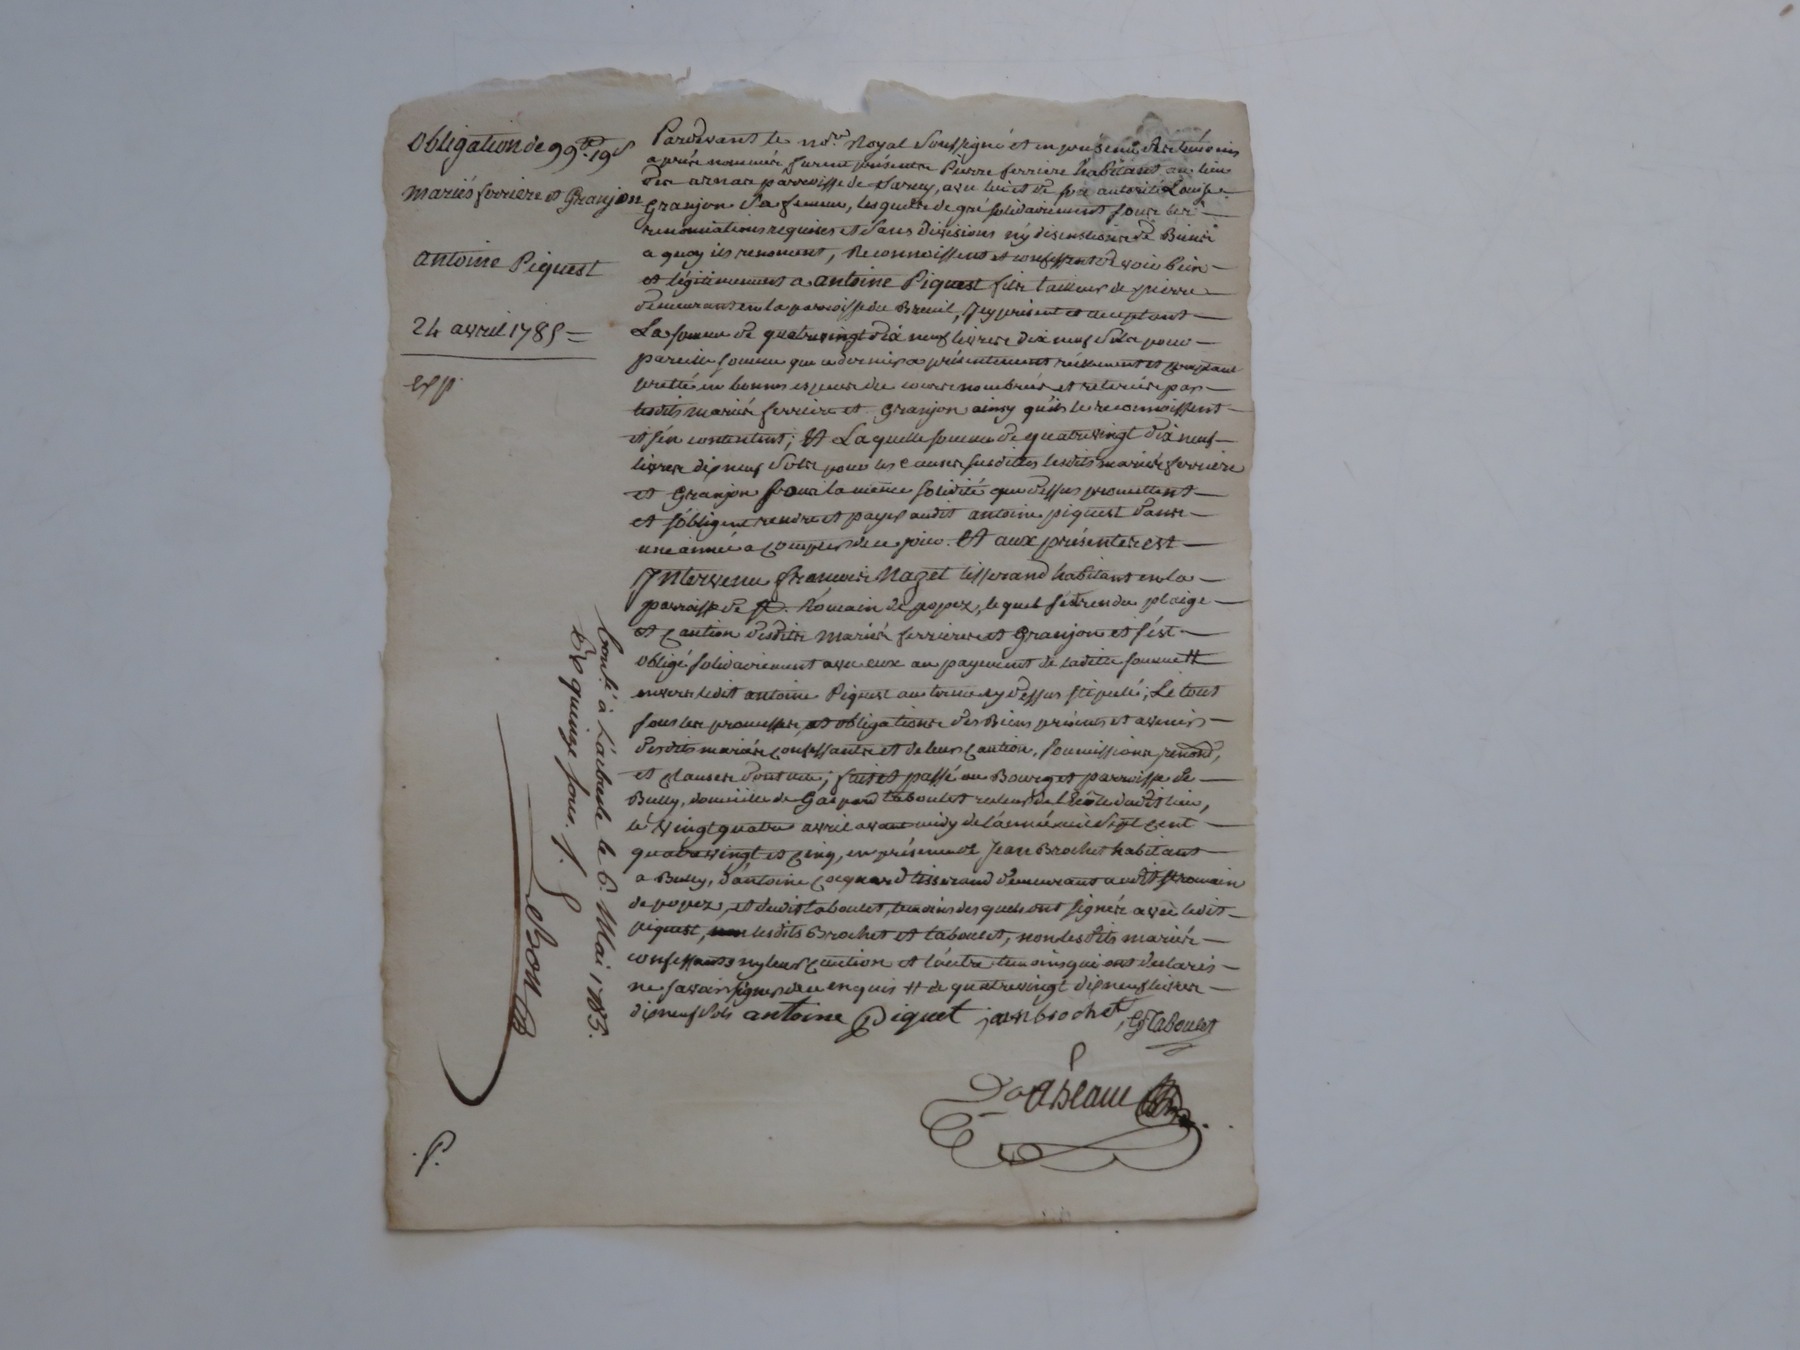 obligation de 99tt 19s
mariés ferriere et Granjon
antoine Piquest
24 avril 1785
exp.
Pardevant le nore Royal soussigné et en presence des temoins
aprés nommés furent présents Pierre ferriere habitant au lieu
des arnas parroisse de Sarcey, avec lui et de son autorité Louise
Granjon sa femme, lesquels de gré solidairement sous les
renonciations requises et sans divisions ny discussions de Biens
a quoy ils renoncent, Reconnoissent et confessent devoir bien
et légitimement a antoine Piquest fils tailleur de pierre
demeurant en la parroisse du Breuil, Icy présent et acceptant
La somme de quatrevingt dix neuf livres dix neuf sols pour
pareille somme que ce dernier a présentement réellement et comptant
pretté en bonnes especes du cours nombrées et retirées par
lesdits mariés ferriere et Granjon ainsy qu'ils le reconnoissent
et s'en contentent; Et Laquelle somme de quatrevingt dix neuf
livres dix neuf sols pour les causes susdittes lesdits mariés ferriere
et Granjon sous la même solidité que dessus promettent
et s'obligent rendre et payer audit antoine piquest dans
une année a compter de ce jour. Et aux présentes est
Intervenu francois Mazet tisserand habitant en la
parroisse de St. Romain de popez, lequel s'est rendu plaige
et caution desdits mariés ferriere et Granjon et s'est
obligé solidairement avec eux au payement de laditte somme #
envers ledit antoine Piquest au terme cy dessus stipulé; Le tout
sous les promesses, et obligations des Biens présents et avenirs
desdits mariés confessants et de leurs caution, soumissions, renond,
et clauses dont acte; fait et passé au Bourg et parroisse de
Bully, domicile de Gaspard taboulet recteur de l'école dudit lieu,
le vingt quatre avril avant midy de l'année mil sept cent
quatrevingt et cinq, en présence de Jean Brochet habitant
a Bully, d'antoine Coquard tisserand demeurant audit St romain
de popez, et dudit taboulet, temoins desquels ont signés avec ledit
piquest, lesdits Brochet et taboulet, non lesdits mariés
confessants ny leur caution et l'autre temoins qui ont declarés
ne savoir signer de ce enquis # de quatrevingt dix neuf livres
dix neuf sols antoine Piquet jean brochet G Taboulet
Contlé à Larbresle le 6. Mai 1785.
Rx quinze sous.